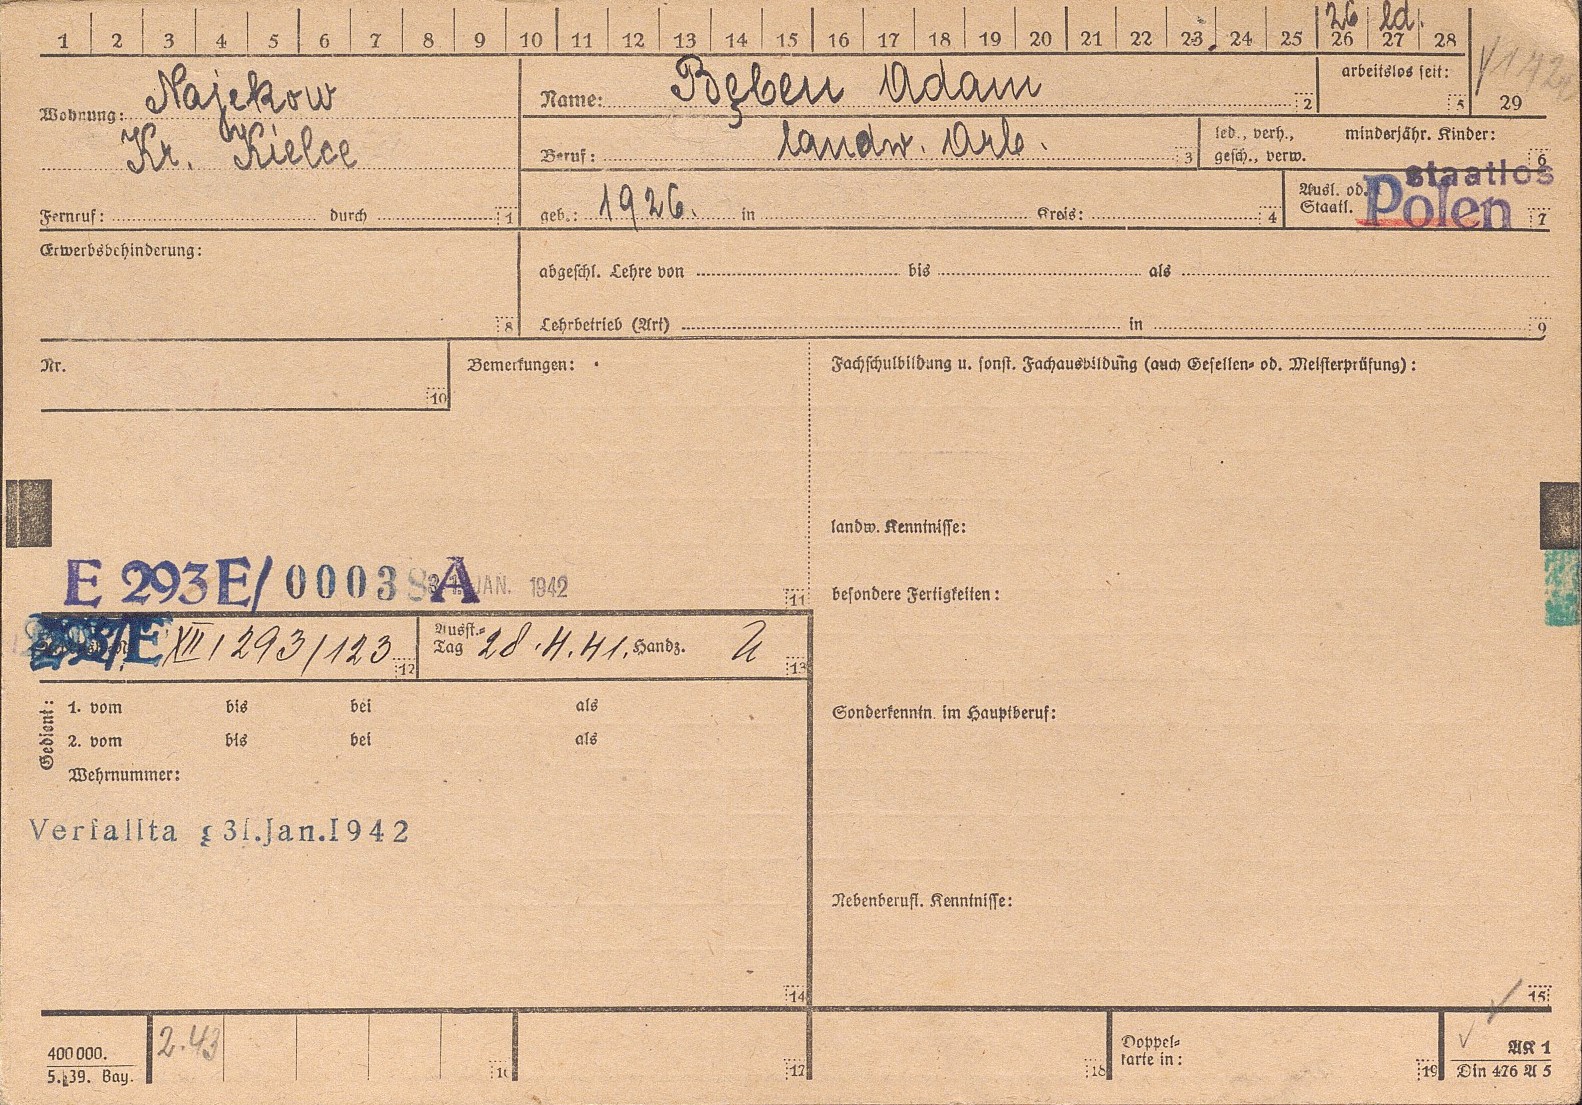 1 2 3 4 5 6 7 8 9 10 11 12 13 14 15 16 17 18 19 20 21 22 23 24 25 26 27 28
26 ld.
Wohnung: Najekow
Kr. Kielce
Fernruf: durch 1
Name: Bęben Adam 2
arbeitslos seit: 5
29
Beruf: landw. Arb. 3
led., verh., gesch., verw.
minderjähr. Kinder: 6
geb.: 1926. in Kreis: 4
Ausl. od. Staatl. staatlos Polen 7
Erwerbsbehinderung: 8
abgeschl. Lehre von bis als
Lehrbetrieb (Art) in 9
Nr. 10
Bemerkungen:
Fachschulbildung u. sonst. Fachausbildung (auch Gesellen- od. Meisterprüfung):
landw. Kenntnisse:
E 293E/ 00038 A 31. JAN. 1942 11
besondere Fertigkeiten:
XII/293/123 12
Ausst.-Tag 28.4.41. Handz. 13
Gedient:
1. vom bis bei als
2. vom bis bei als
Wehrnummer:
Sonderkenntn. im Hauptberuf:
Verfallta g 31.Jan.1942
Nebenberufl. Kenntnisse:
14
15
400 000.
5. 39. Bay.
2.43
16
17
18
Doppelkarte in: 19
AK 1
Din 476 A 5